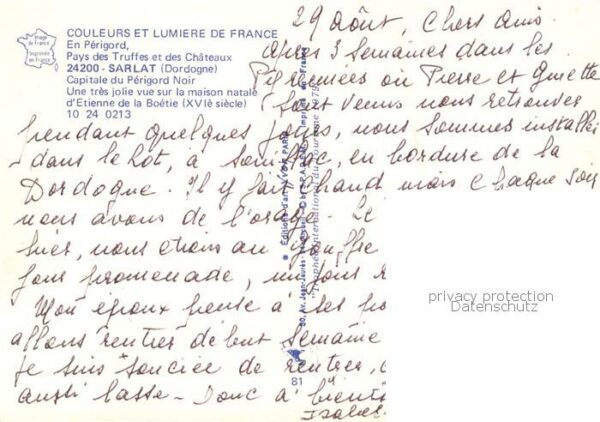 Image
de France
Imprimée
en France
COULEURS ET LUMIERE DE FRANCE
En Périgord,
Pays des Truffes et des Châteaux
24200 - SARLAT (Dordogne)
Capitale du Périgord Noir
Une très jolie vue sur la maison natale
d'Etienne de la Boétie (XVIè siècle)
10 24 0213
29 août, Chers Amis
Après 3 semaines dans les
Pyrénées où Pierre et Ginette
sont venus nous retrouver
pendant quelques jours, nous sommes installés
dans le Lot, à Souillac, en bordure de la
Dordogne. Il y fait chaud mais chaque soir
nous avons de l'orage. Le
hier, nous étions au Gouffre
promenade,
Mon époux pense à ses
allons rentrer début semaine
je suis de rentrer,
aussi lasse - Donc à bientôt
Isabel
Editions d'art YVON, PARIS
"Trophée International du Tourisme 1979"
81
privacy protection
Datenschutz